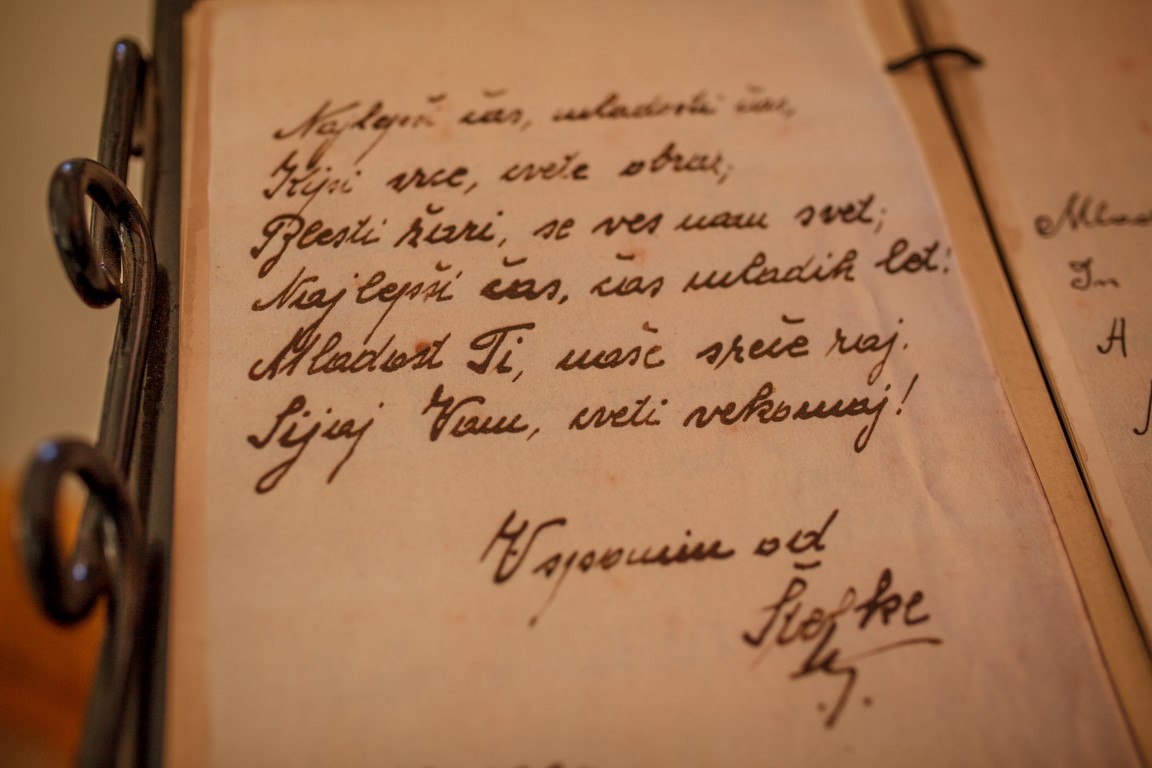 Najlepši čas, mladosti čas,
Kipi srce, cvete obraz;
Blesti žari, se ves nam svet;
Najlepši čas, čas mladih let!
Mladost Ti, naše sreče raj.
Sijaj Vam, cveti vekomaj!
Vspomin od
Štefke
Mlad
In
A